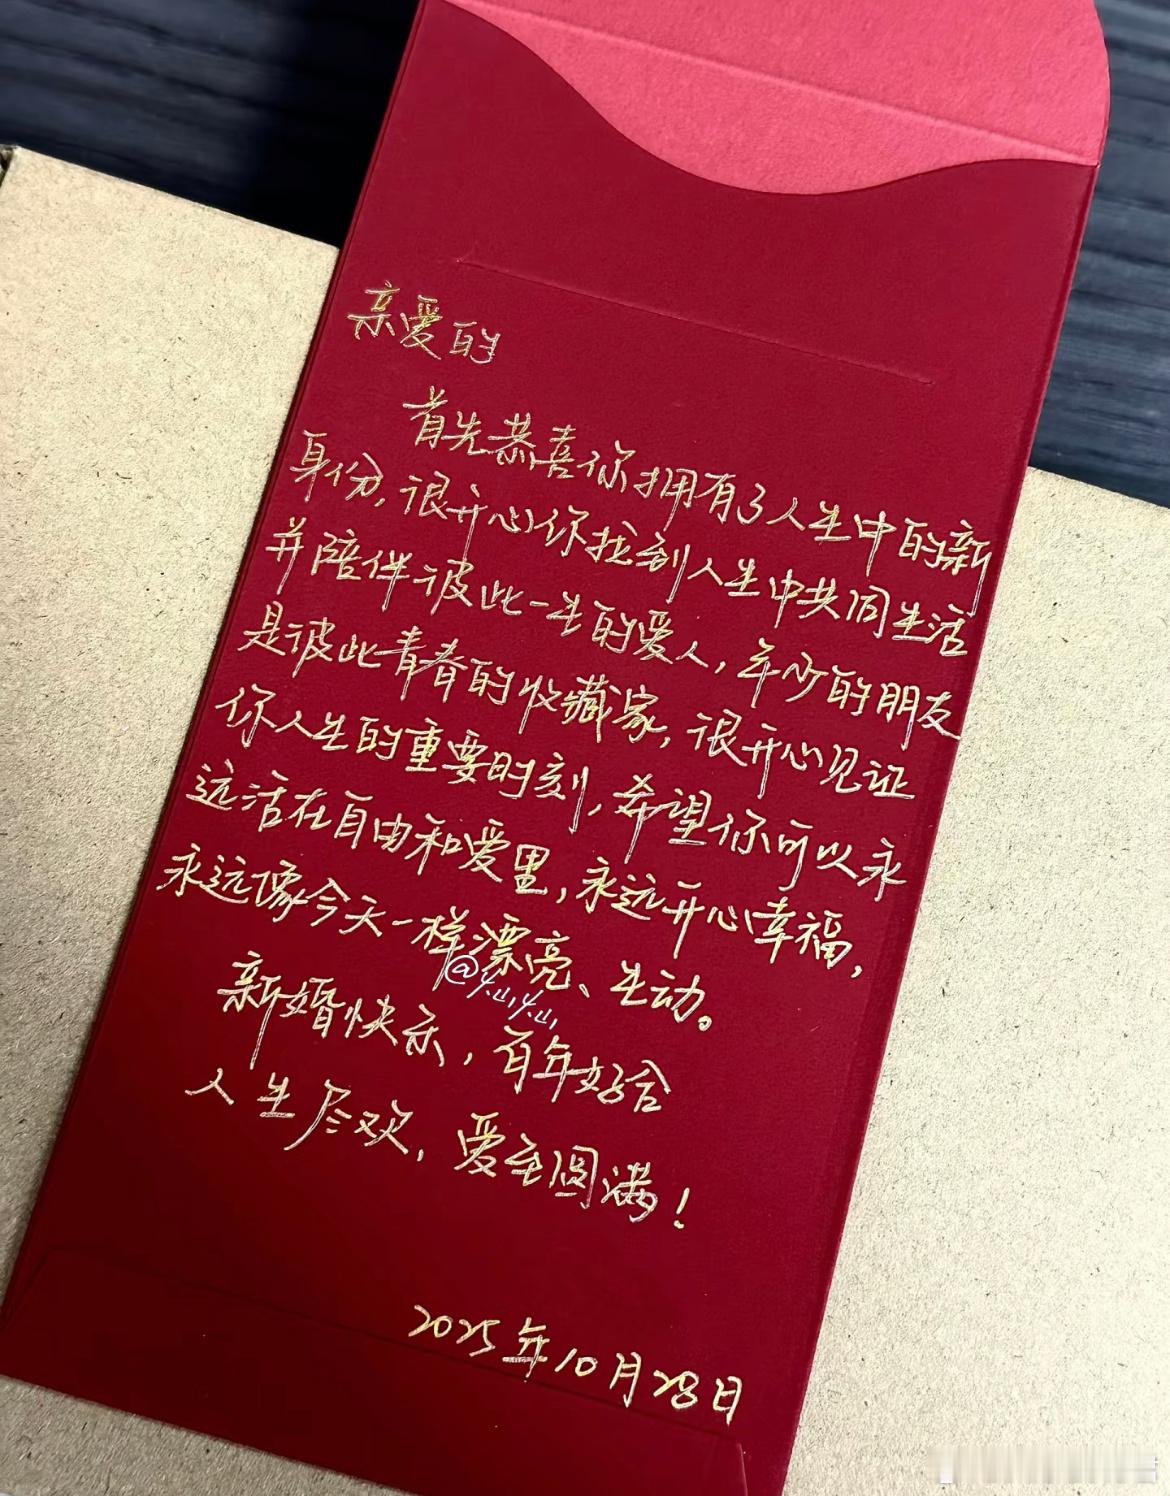 亲爱的
首先恭喜你拥有了人生中的新
身份,很开心你找到人生中共同生活
并陪伴彼此一生的爱人,年少的朋友
是彼此青春的收藏家,很开心见证
你人生的重要时刻,希望你可以永
远活在自由和爱里,永远开心幸福,
永远像今天一样漂亮、生动。
@火山火山
新婚快乐,百年好合
人生尽欢,爱至圆满!
2025年10月28日